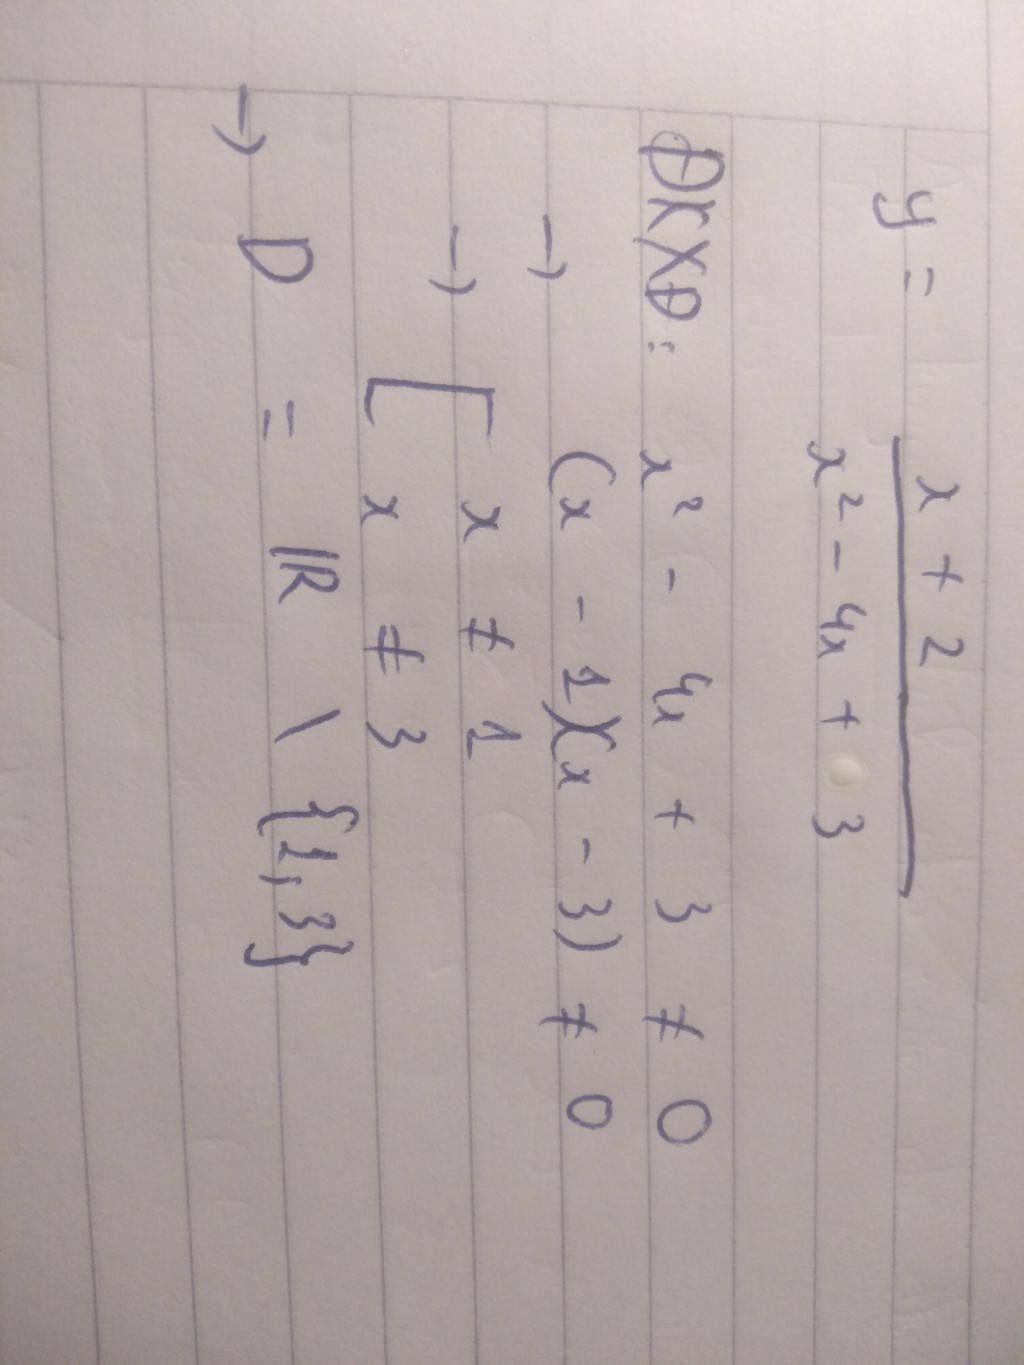 y = \frac{x + 2}{x² - 4x + 3}
ĐKXĐ: x² - 4x + 3 ≠ 0
→ (x - 1)(x - 3) ≠ 0
→ [ x ≠ 1
x ≠ 3
→ D = ℝ \ {1, 3}